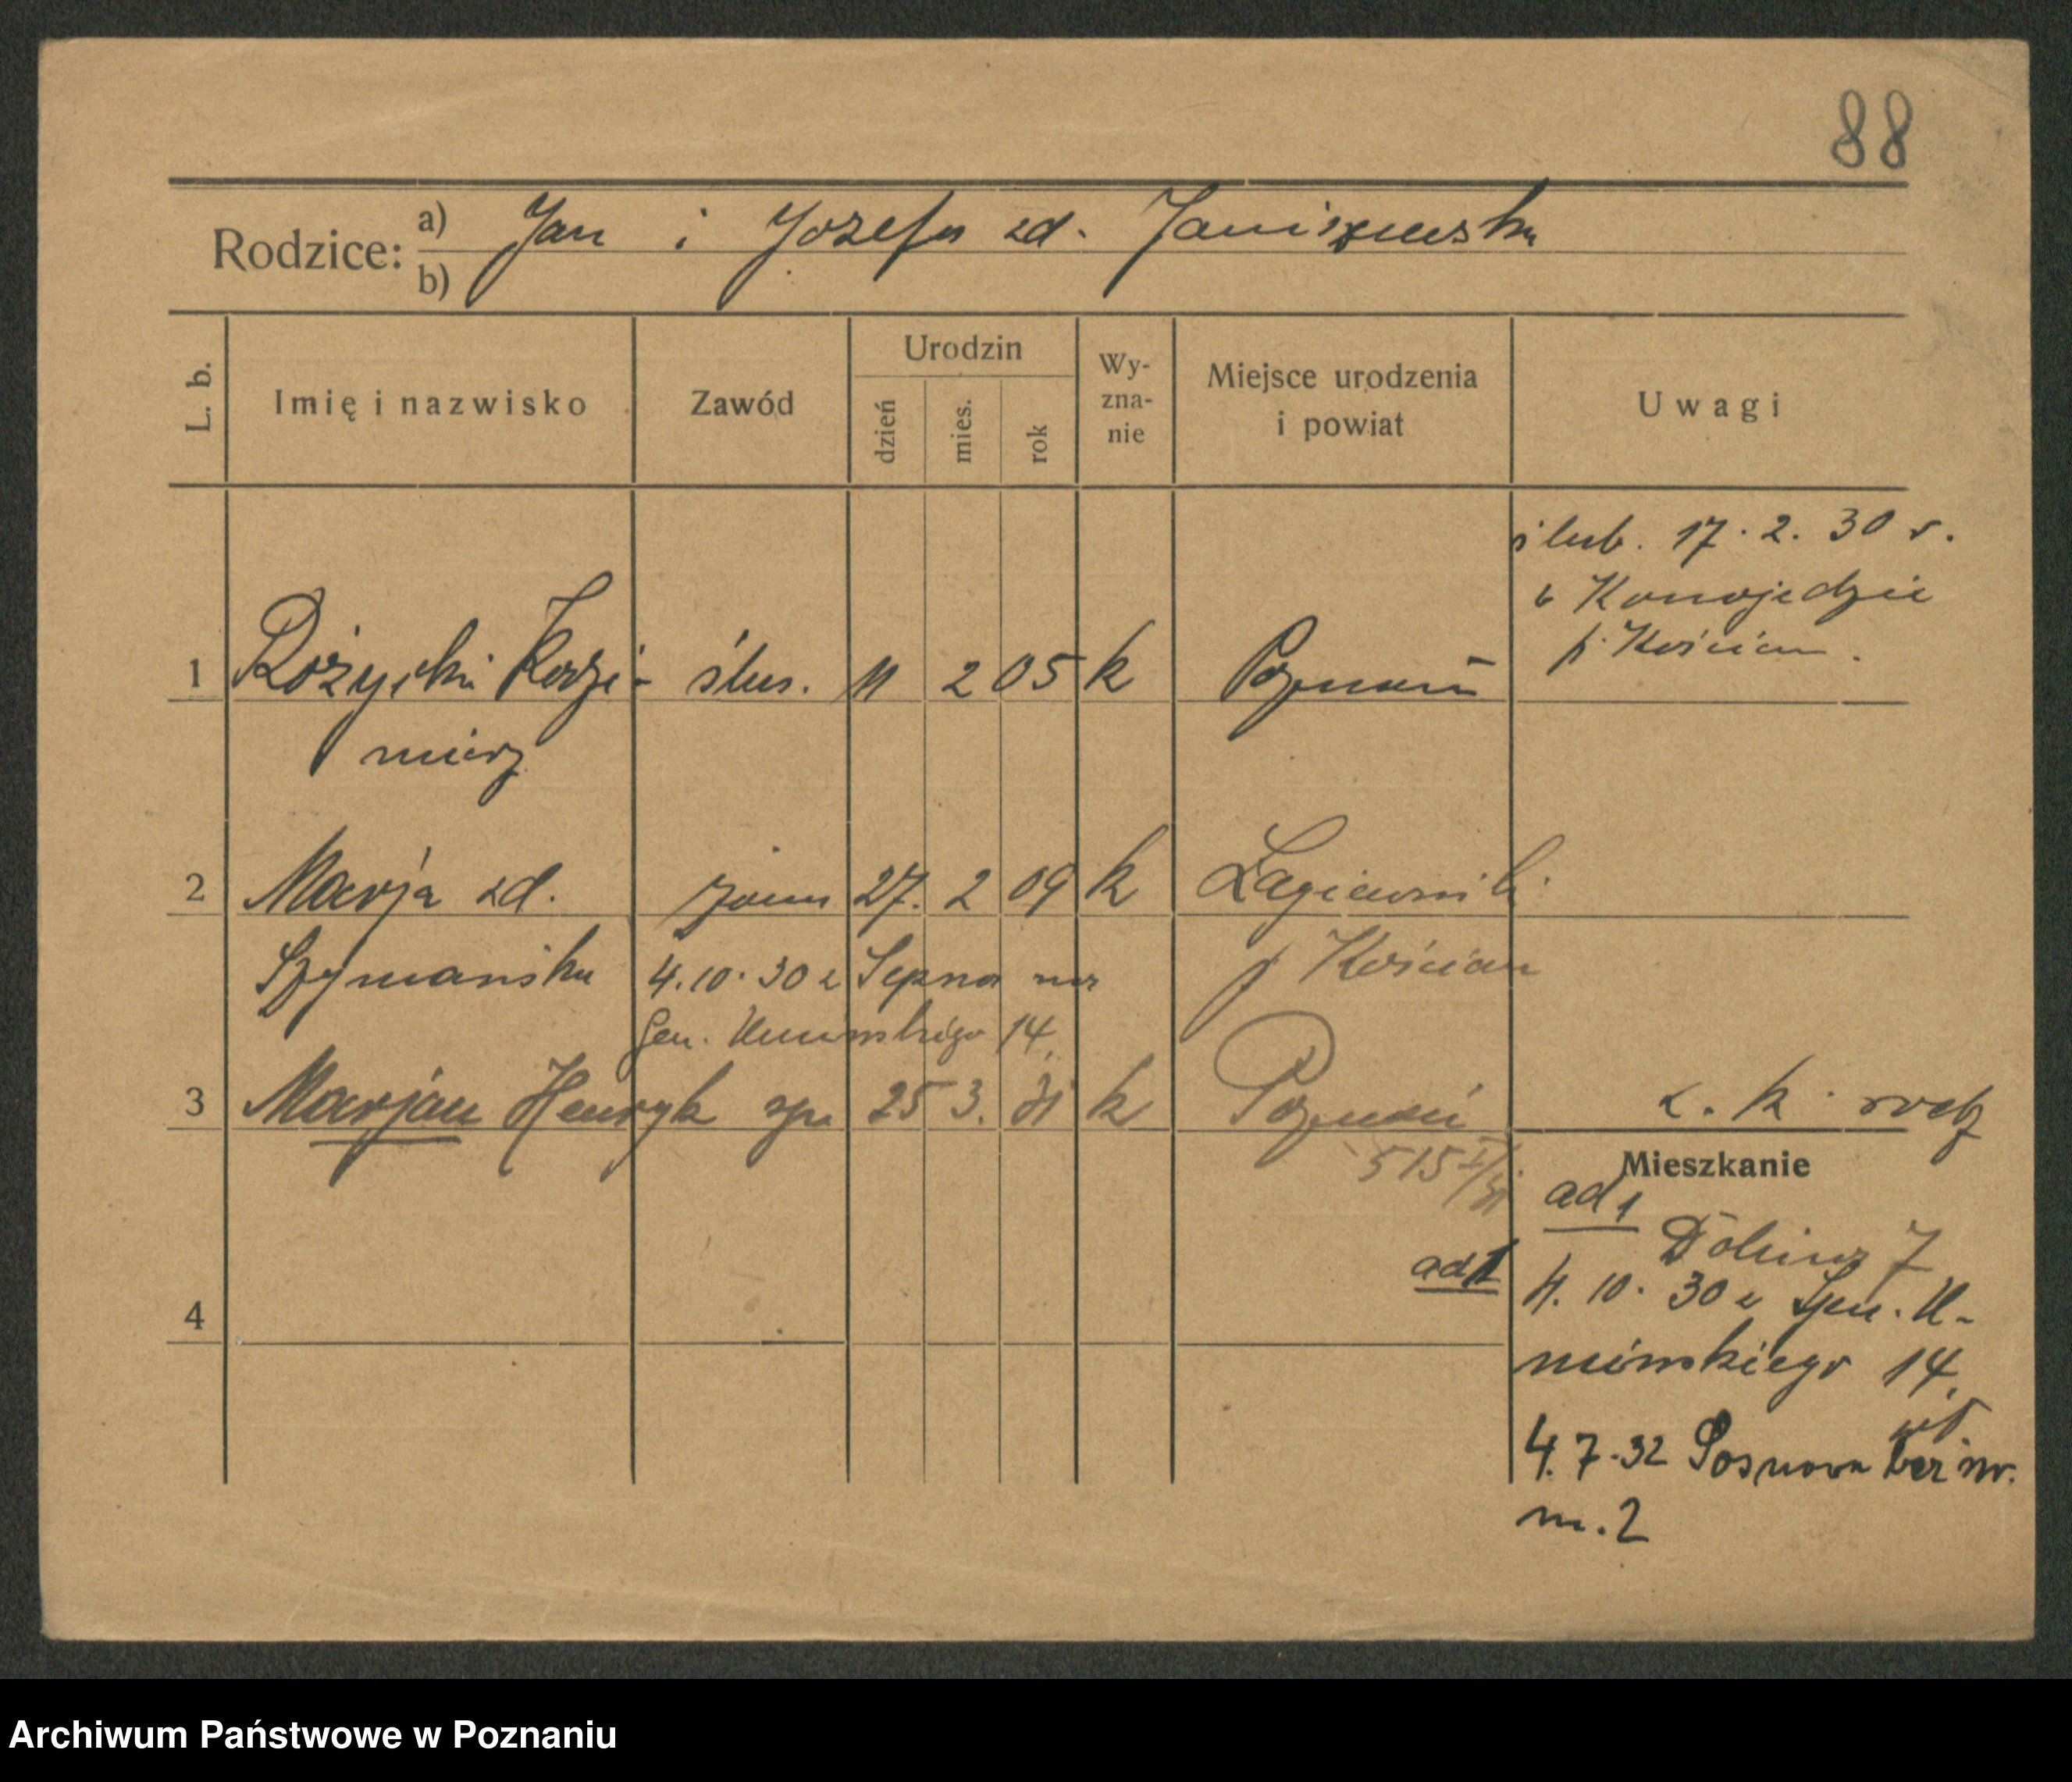 88
Rodzice: a) Jan i Józefa zd. Janiszewska
b)
L. b.
Imię i nazwisko
Zawód
Urodzin
dzień
mies.
rok
Wy-
zna-
nie
Miejsce urodzenia
i powiat
Uwagi
ślub. 17. 2. 30 r.
w Konojedzie
p. Kościan.
1 Różycki Kazi- ślus. 11 2 05 k Poznań
mierz
2 Marja zd. żona 27. 2 09 k Łagiewniki
Szymańska
p Kościan
4.10.30 z Sepna na
Gen. Umińskiego 14.
3 Marjan Henryk syn 25 3. 31 k Poznań
z. k. rodz
515 I/31
Mieszkanie
ad 1
Dolina 7
ad 1
4. 10. 30 Gen. U-
mińskiego 14.
4
4. 7. 32 Sosnowa bez nr.
m. 2
Archiwum Państwowe w Poznaniu